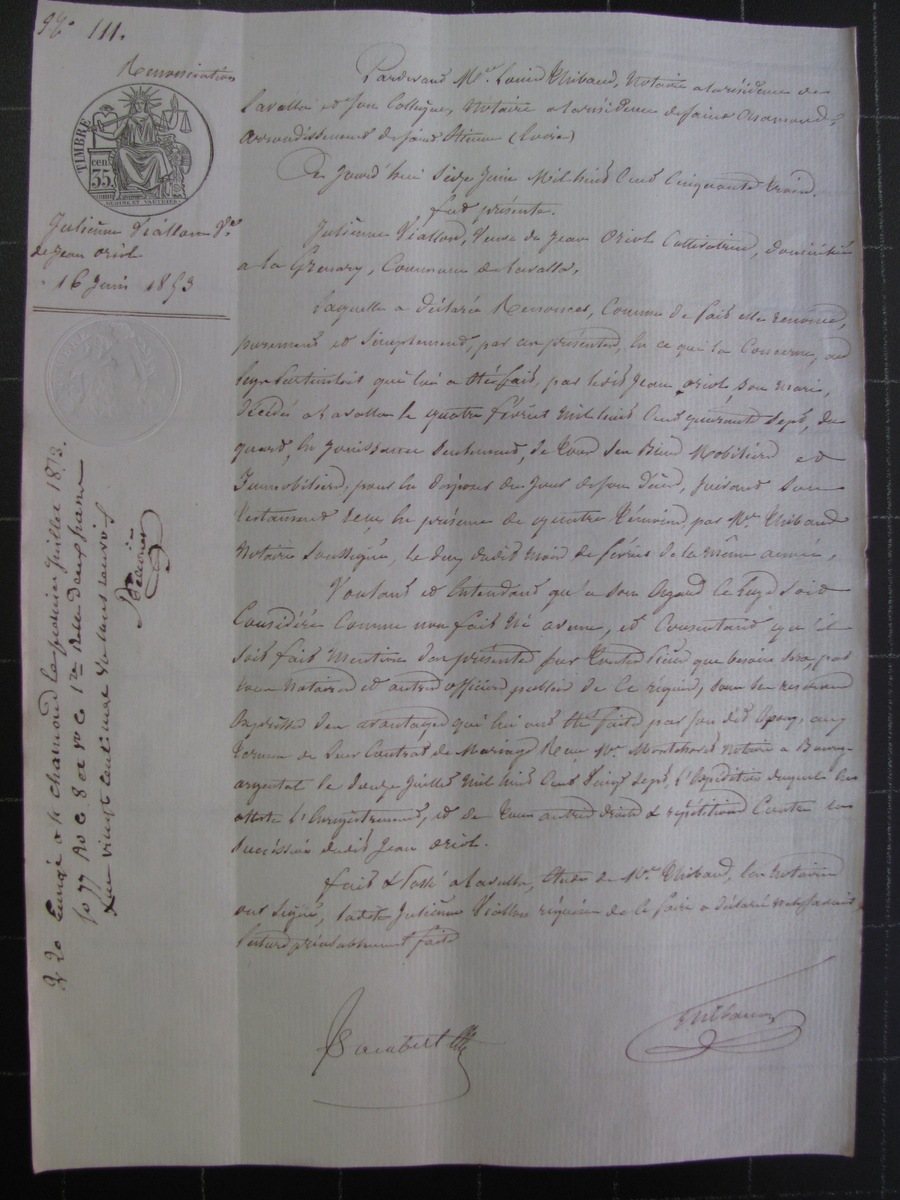 N° 111.
Renonciation
TIMBRE
cen
35
Julienne Viallon Ve
de Jean Oriol
16 Juin 1853
Pardevant Me. Louis Thibaud, Notaire a la résidence de
Lavalla et Son Collegue, Notaire a la résidence de Saint Chamond,
Arrondissement de Saint Etienne (Loire)
Ce Jourd'hui Seize Juin Mil huit Cent Cinquante trois
fut présente.
Julienne Viallon, Veuve de Jean Oriol Cultivatrice, domiciliée
a la Commune de Lavalla,
Laquelle a déclaré Renoncer, Comme de fait elle renonce,
purement et Simplement, par ces présentes, en ce qui la Concerne, au
legs qui lui a été fait, par ledit Jean Oriol, Son Mari,
décédé a Lavalla le quatre février Mil huit Cent quarante Sept, du
quart, en Jouissance Seulement, de tous Ses Biens Mobiliers et
Immobiliers, du Jour de Son décès, Suivant Son
testament reçu en présence de quatre témoins, par Me. Thibaud
Notaire Soussigné, le deux dudit Mois de février de la même année,
Voulant et Entendant qu'a Son Egard le legs soit
Considéré Comme non fait Ni avenu, et Consentant qu'il
soit fait Mention des présentes Sur toutes pièces que besoin Sera, par
tous Notaires et autres officiers publics de ce requis, Sous la reserve
Expresse des avantages qui lui ont été faits par Son dit Epoux, aux
termes de leur Contrat de Mariage Reçu Me. Notaire a Bourg-
argental le Juillet Mil huit Cent Vingt Sept, l'Expédition duquel en
atteste l'Enregistrement, et de tous autres droits & répétitions Contre la
Succession dudit Jean Oriol.
Fait & Passé a Lavalla, Etude de Me. Thibaud, les Notaires
ont Signé, ladite Julienne Viallon requise de le faire a déclaré ne le Savoir,
lecture préalablement faite
Thibaud
Enregé a St Chamond le premier Juillet 1853.
fo 77 Ro C. 8 et Vo C. 1re Reçu deux francs
vingt centimes